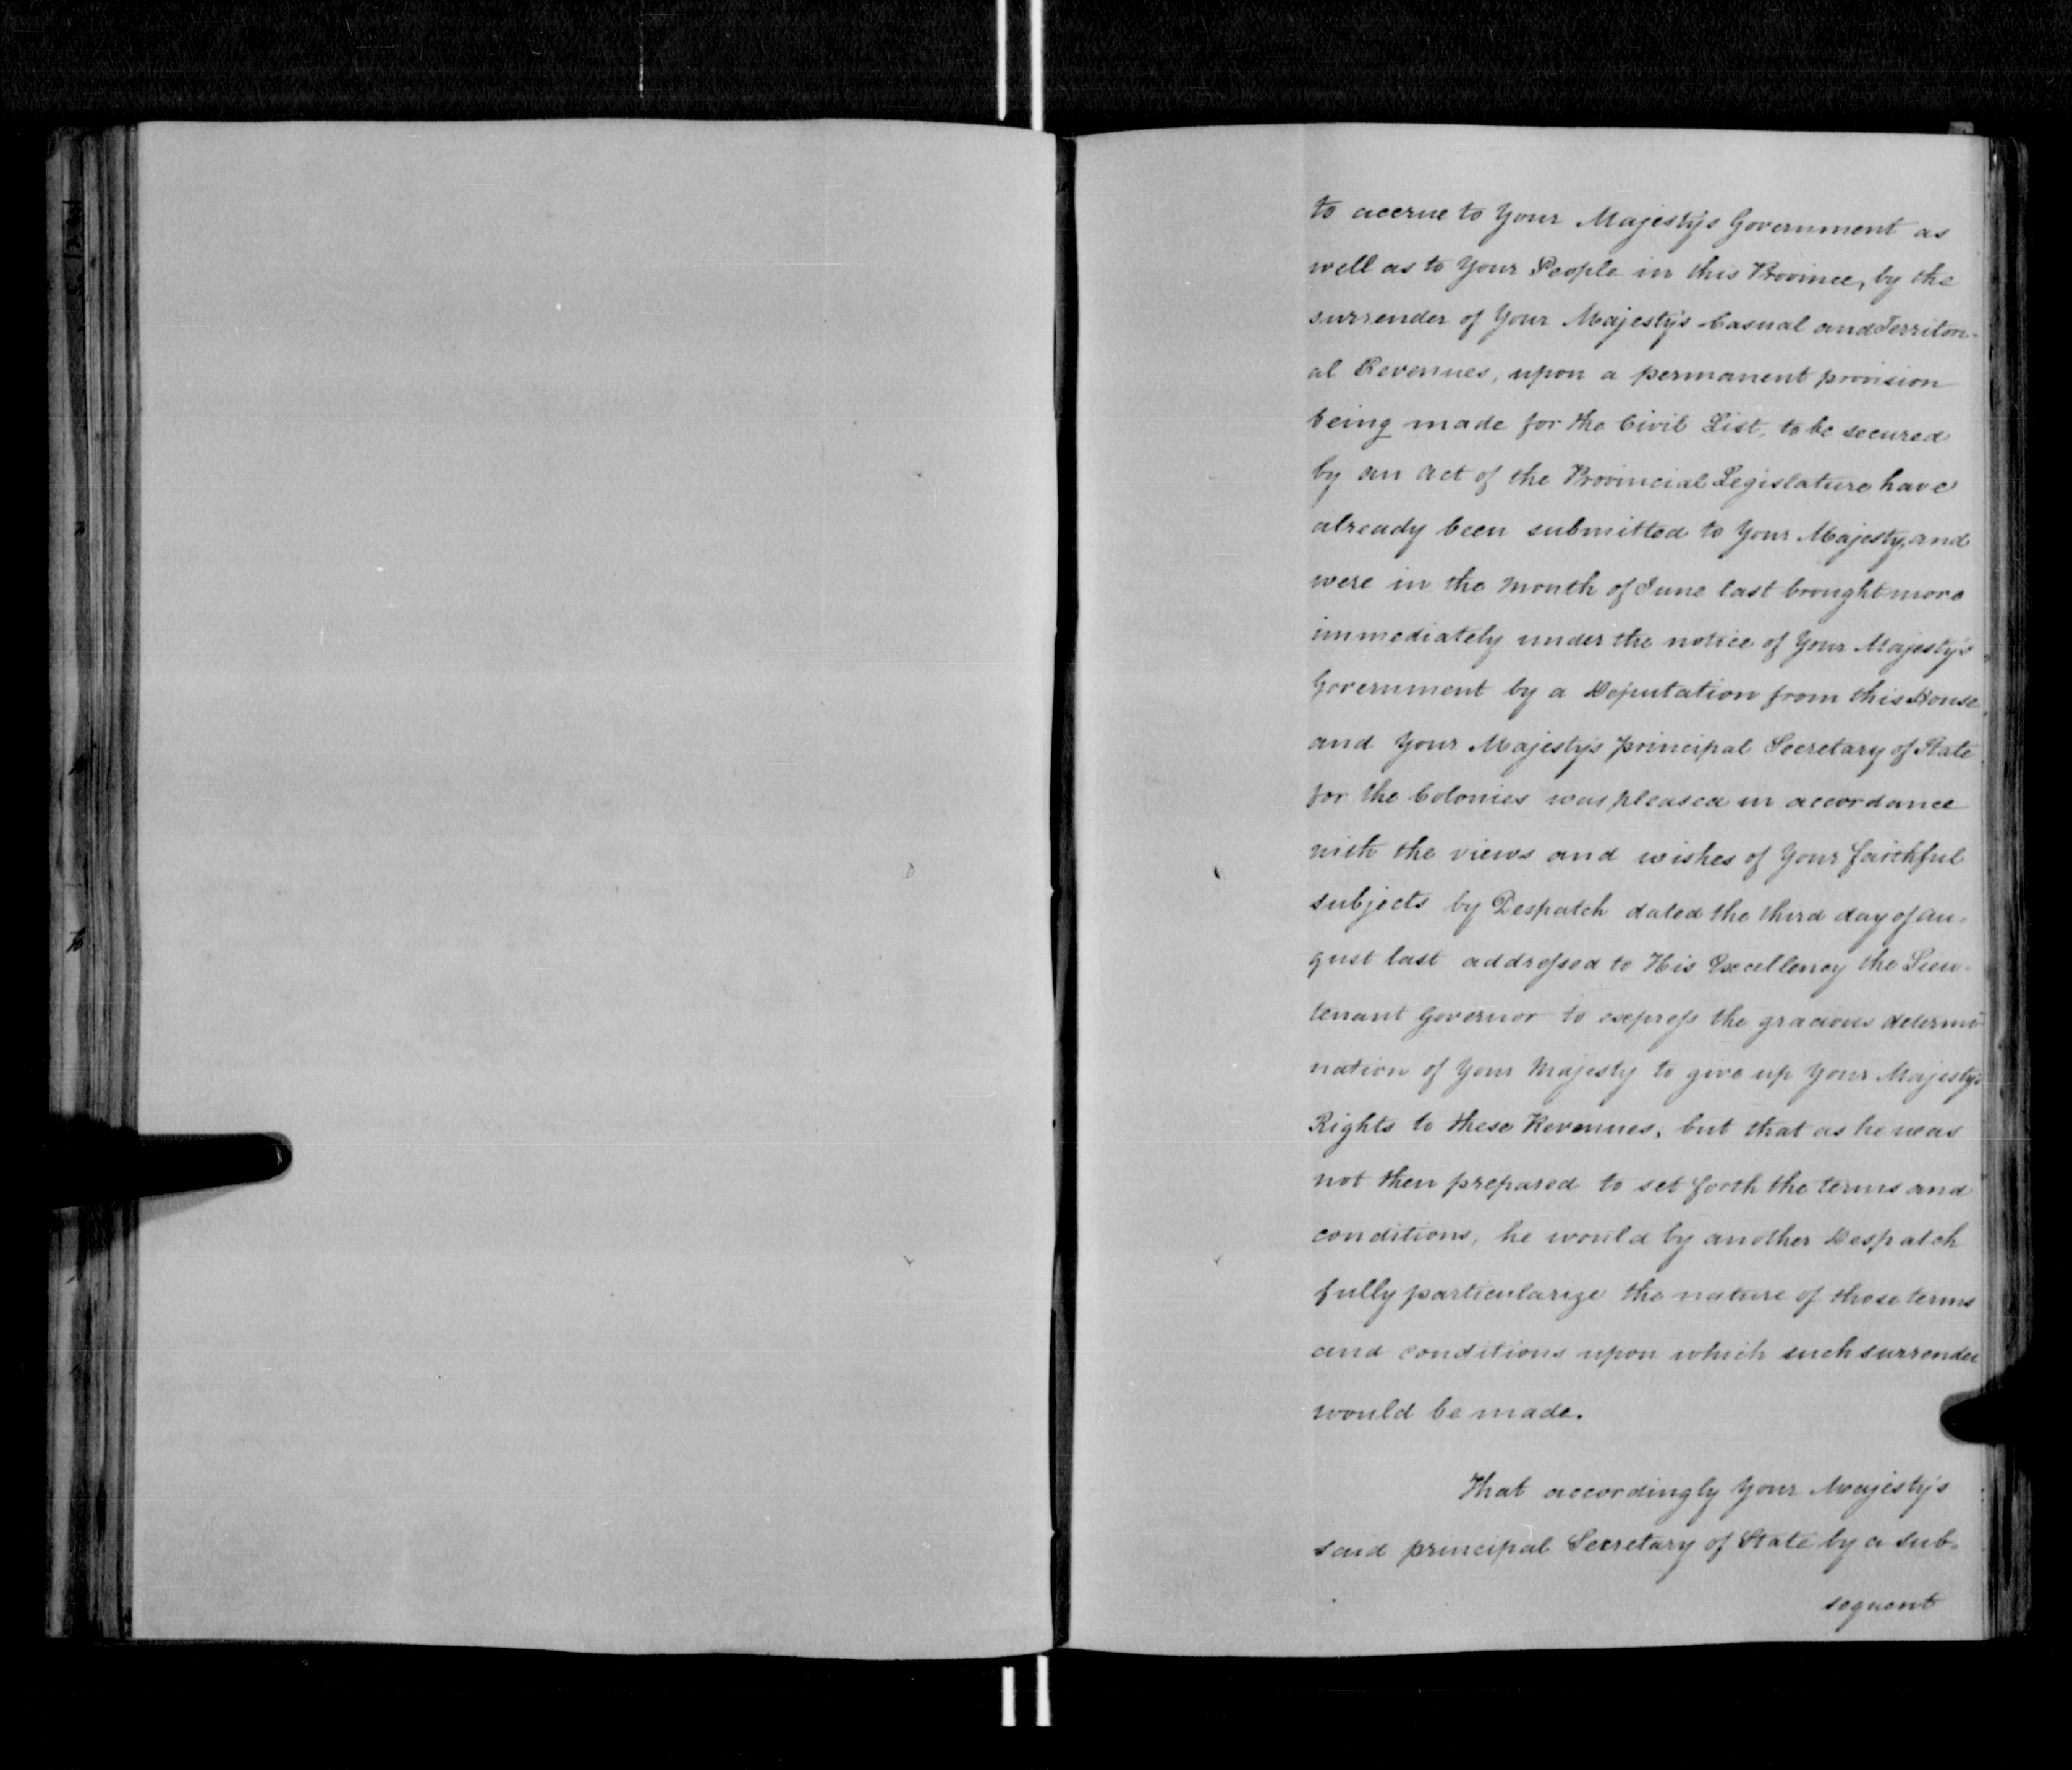 to accrue to Your Majesty's Government as
well as to Your People in this Province, by the
surrender of Your Majesty's Casual and Territori-
al Revenues, upon a permanent provision
being made for the Civil List, to be secured
by an Act of the Provincial Legislature have
already been submitted to Your Majesty, and
were in the Month of June last brought more
immediately under the notice of Your Majesty's
Government by a Deputation from this House
and Your Majesty's principal Secretary of State
for the Colonies was pleased in accordance
with the views and wishes of Your faithful
subjects by Despatch dated the third day of Au-
gust last addressed to His Excellency the Lieu-
tenant Governor to express the gracious determi-
nation of Your Majesty to give up Your Majesty's
Rights to these Revenues, but that as he was
not then prepared to set forth the terms and
conditions, he would by another Despatch
fully particularize the nature of those terms
and conditions upon which such surrender
would be made.
That accordingly Your Majesty's
said principal Secretary of State by a sub-
sequent